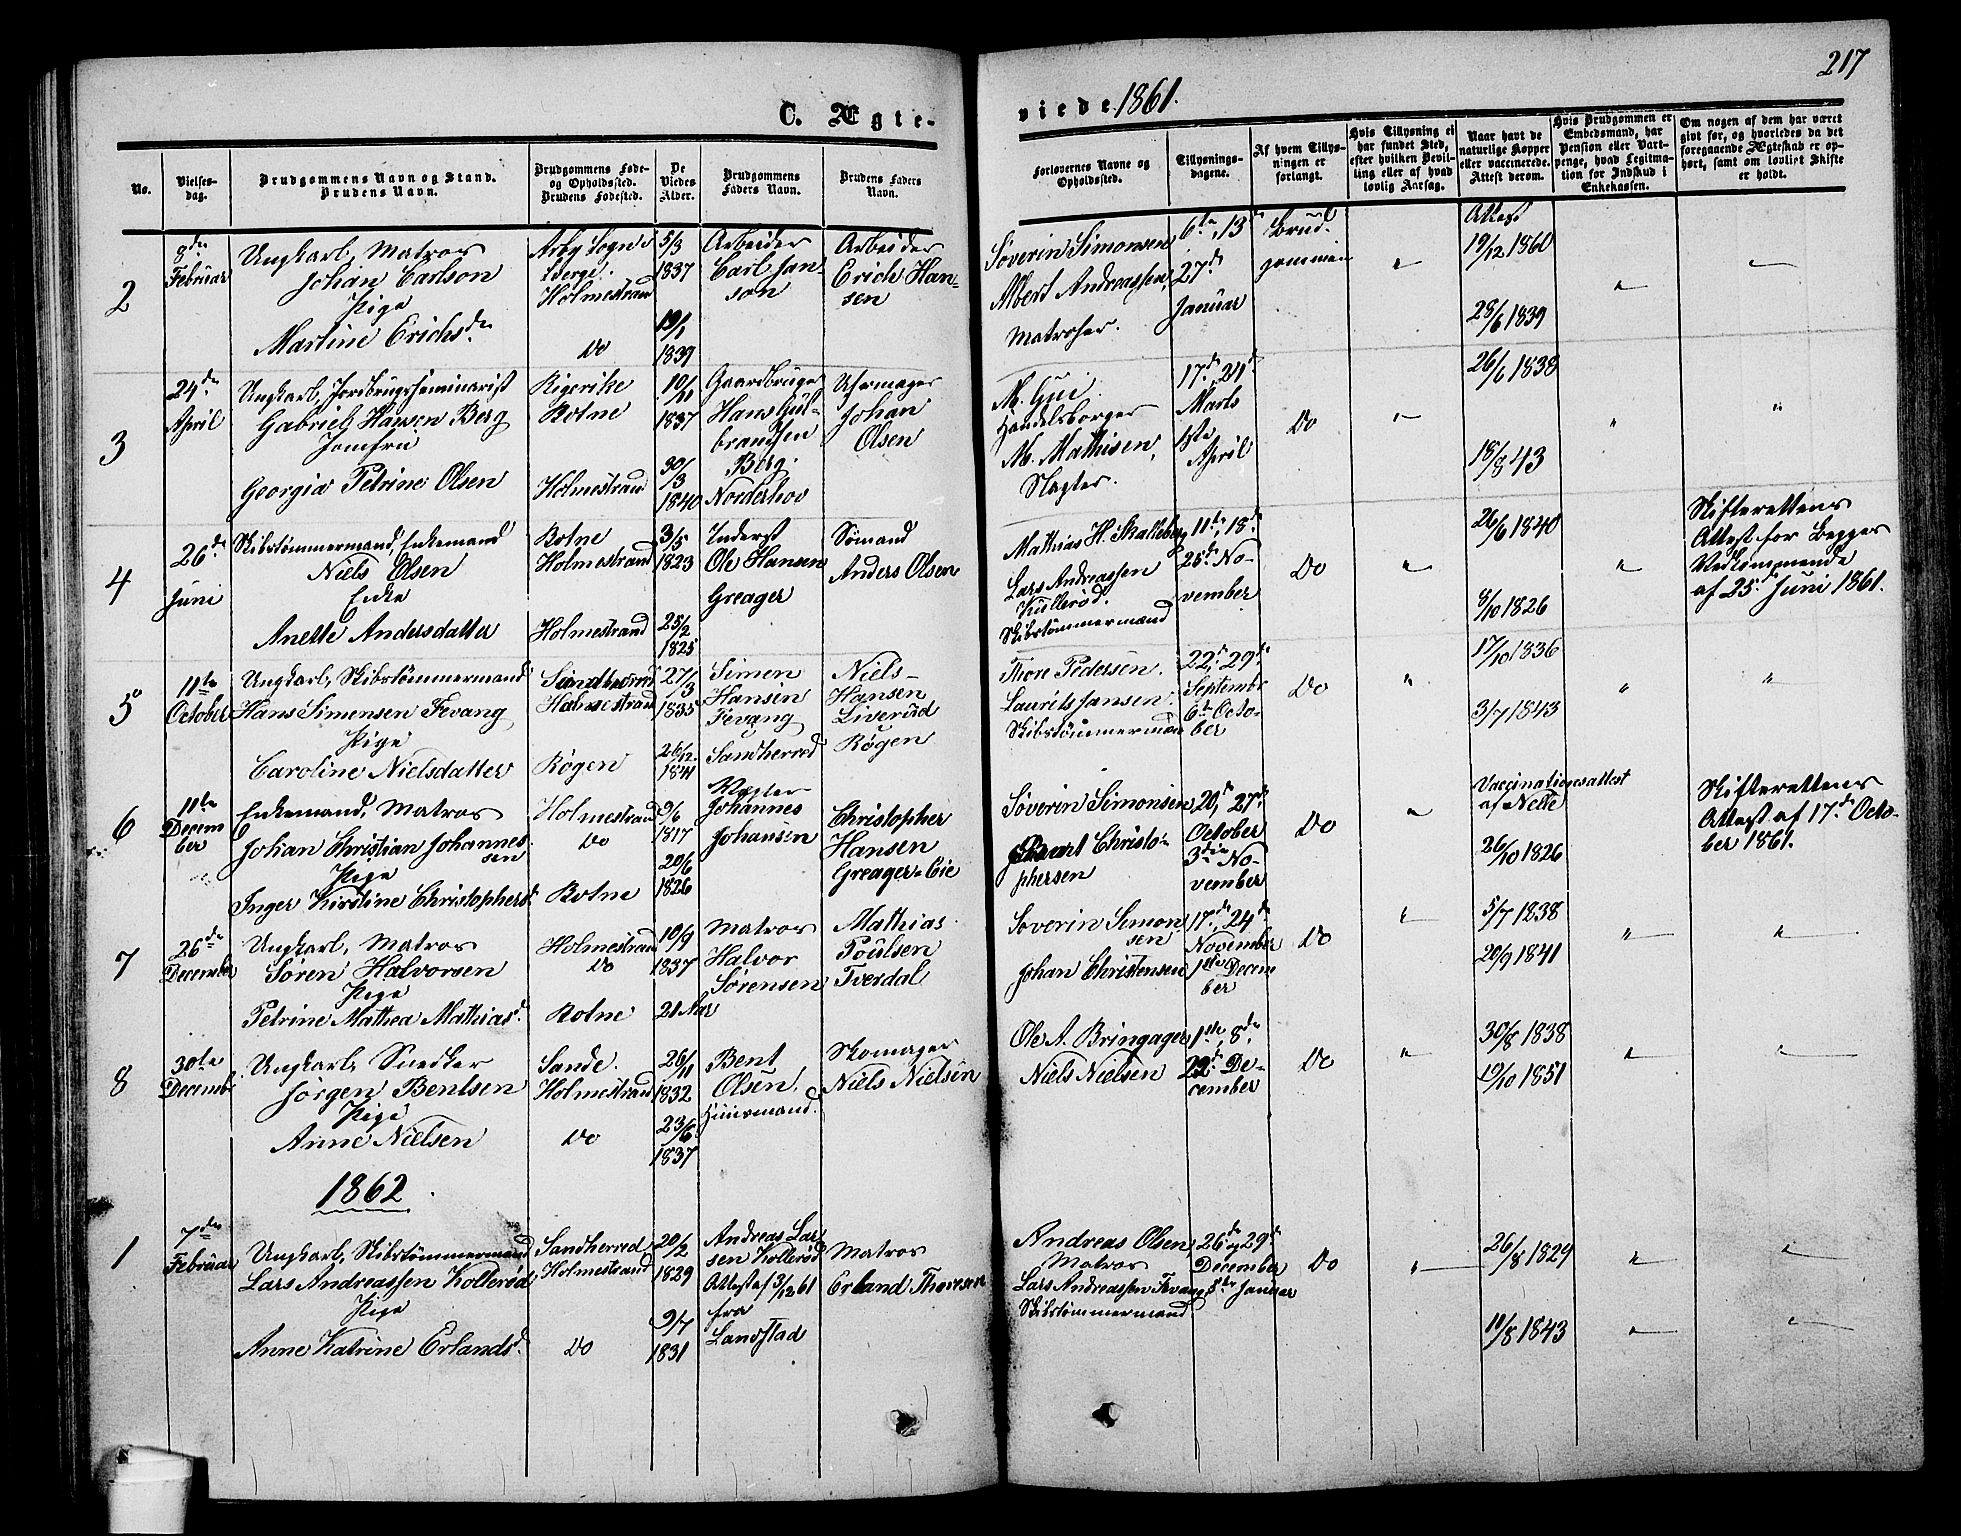 217
C. Ægte-
viede 1861.
No.
Vielses-
dag.
Brudgommens Navn og Stand.
Brudens Navn.
Brudgommens Føde-
og Opholdssted.
Brudens Fødested.
De
Viedes
Alder.
Brudgommens
Faders Navn.
Brudens Faders
Navn.
Forlovernes Navne og
Opholdssted.
Tillysnings-
dagene.
Af hvem Tillys-
ningen er
forlangt.
Hvis Tillysning ei
har fundet Sted,
efter hvilken Bevil-
ling eller af hvad
lovlig Aarsag.
Naar havt de
naturlige Kopper
eller vaccinerede.
Attest derom.
Hvis Brudgommen er
Embedsmand, har
Pension eller Vart-
penge, hvad Legitima-
tion for Indskud i
Enkekassen.
Om nogen af dem har været
gift før, og hvorledes da det
foregaaende Ægteskab er op-
hørt, samt om lovligt Skifte
er holdt.
2
8de
Februar
Ungkarl, Matros
Johan Carlson
Pige
Martine Erichsdr
Sogn
Berge.
Holmestrand
Do
5/3
1837
19/1
1839
Arbeider
Carl Jan-
son
Arbeider
Erich Han-
sen
Søverin Simonsen
Albert Andreassen,
Matroser.
6te, 13de
27de
Januar
Brud-
gommen
"
Attest
19/12 1860
28/6 1839
"
"
3
24de
April
Ungkarl, Jordbrugsseminarist
Gabriel Hansen Berg
Jomfru
Georgia Petrine Olsen
Rigerike
Botne
Holmestrand
10/11
1837
30/3
1840
Gaardbruger
Hans Gul-
brandsen
Berg.
Norderhov
Uhrmager
Johan
Olsen
M.
Handelsborger
M. Mathisen,
Slagter.
17de, 24de
Marts
1ste
April
Do
"
26/6 1838
18/8 43
"
"
4
26de
Juni
Skibstømmermand, Enkemand
Niels Olsen
Enke
Anette Andersdatter
Botne
Holmestrand
Holmestrand
3/5
1823
25/2
1825
Inderst
Ole Hansen
Greager
Sømand
Anders Olsen
Mathias H. Skalleberg
Lars Andreassen
Kullerød.
Skibstømmermænd
11te, 18de
25de No-
vember
Do
"
26/6 1840
8/10 1826
"
Skifterettens
Attest for Begges
Vedkommende
af 25de Juni 1861.
5
11te
October
Ungkarl, Skibstømmermand
Hans Simensen Fevang
Pige
Caroline Nielsdatter
Sandherred
Holmestrand
Røgen
27/3
1835
26/12
1841
Simen
Hansen
Fevang
Sandherred
Niels
Hansen
Liverud
Røgen
Thore Pedersen.
Laurits Jansen.
Skibstømmermænd
22de, 29de
Septembr
6te Octo-
ber
Do
"
17/10 1836
3/7 1843
"
"
6
11te
Decem
ber
Enkemand, Matros
Johan Christian Johannes-
sen
Pige
Inger Kirstine Christophersdr
Holmestrand
Do
Botne
9/6
1817
20/6
1826
Johannes
Johansen
Christopher
Hansen
Greager-Eie
Søverin Simonsen
Christo-
phersen
20de, 27de
October
3die No-
vember
Do
"
Vaccinationsattest
af Nette
26/10 1826
Skifterettens
Attest af 17de Octo-
ber 1861.
7
26de
December
Ungkarl, Matros
Søren Halvorsen
Pige
Petrine Mathea Mathiasdr.
Holmestrand
Do
Botne
10/9
1837
21 Aar
Matros
Halvor
Sørensen
Mathias
Poulsen
Tverdal
Soverin Simon
sen
Johan Christensen
17de, 24de
November
1ste Decem
ber
Do
"
5/7 1838
20/9 1841
"
"
8
30te
Decembr
Ungkarl, Snedker
Jørgen Bentsen
Pige
Anne Nielsen
Sande.
Holmestrand
Do
26/11
1832
23/6
1837
Bent
Olsen.
Huusmand.
Skomager
Niels Nielsen
Ole A. Bringager
Niels Nielsen
1ste, 8de
22de De-
cember
Do
"
30/8 1838
19/10 1851
"
"
1862
1
7de
Februar
Ungkarl, Skibstømmermand
Lars Andreassen Kollerød
Pige
Anne Katrine Erlandsdr.
Sandherred,
Holmestrand
Do
20/2
1829
9/7
1831
Andreas Lar-
sen Kollerød
Attest af 3/12 61
fra
Landstad
Matros
Erland Thoresen
Andreas Olsen,
Matros
Lars Andreassen Fevang
Skibstømmermand
26de og 29de
December
5te Januar
Do
"
26/8 1829
11/8 1843
"
"
"
"